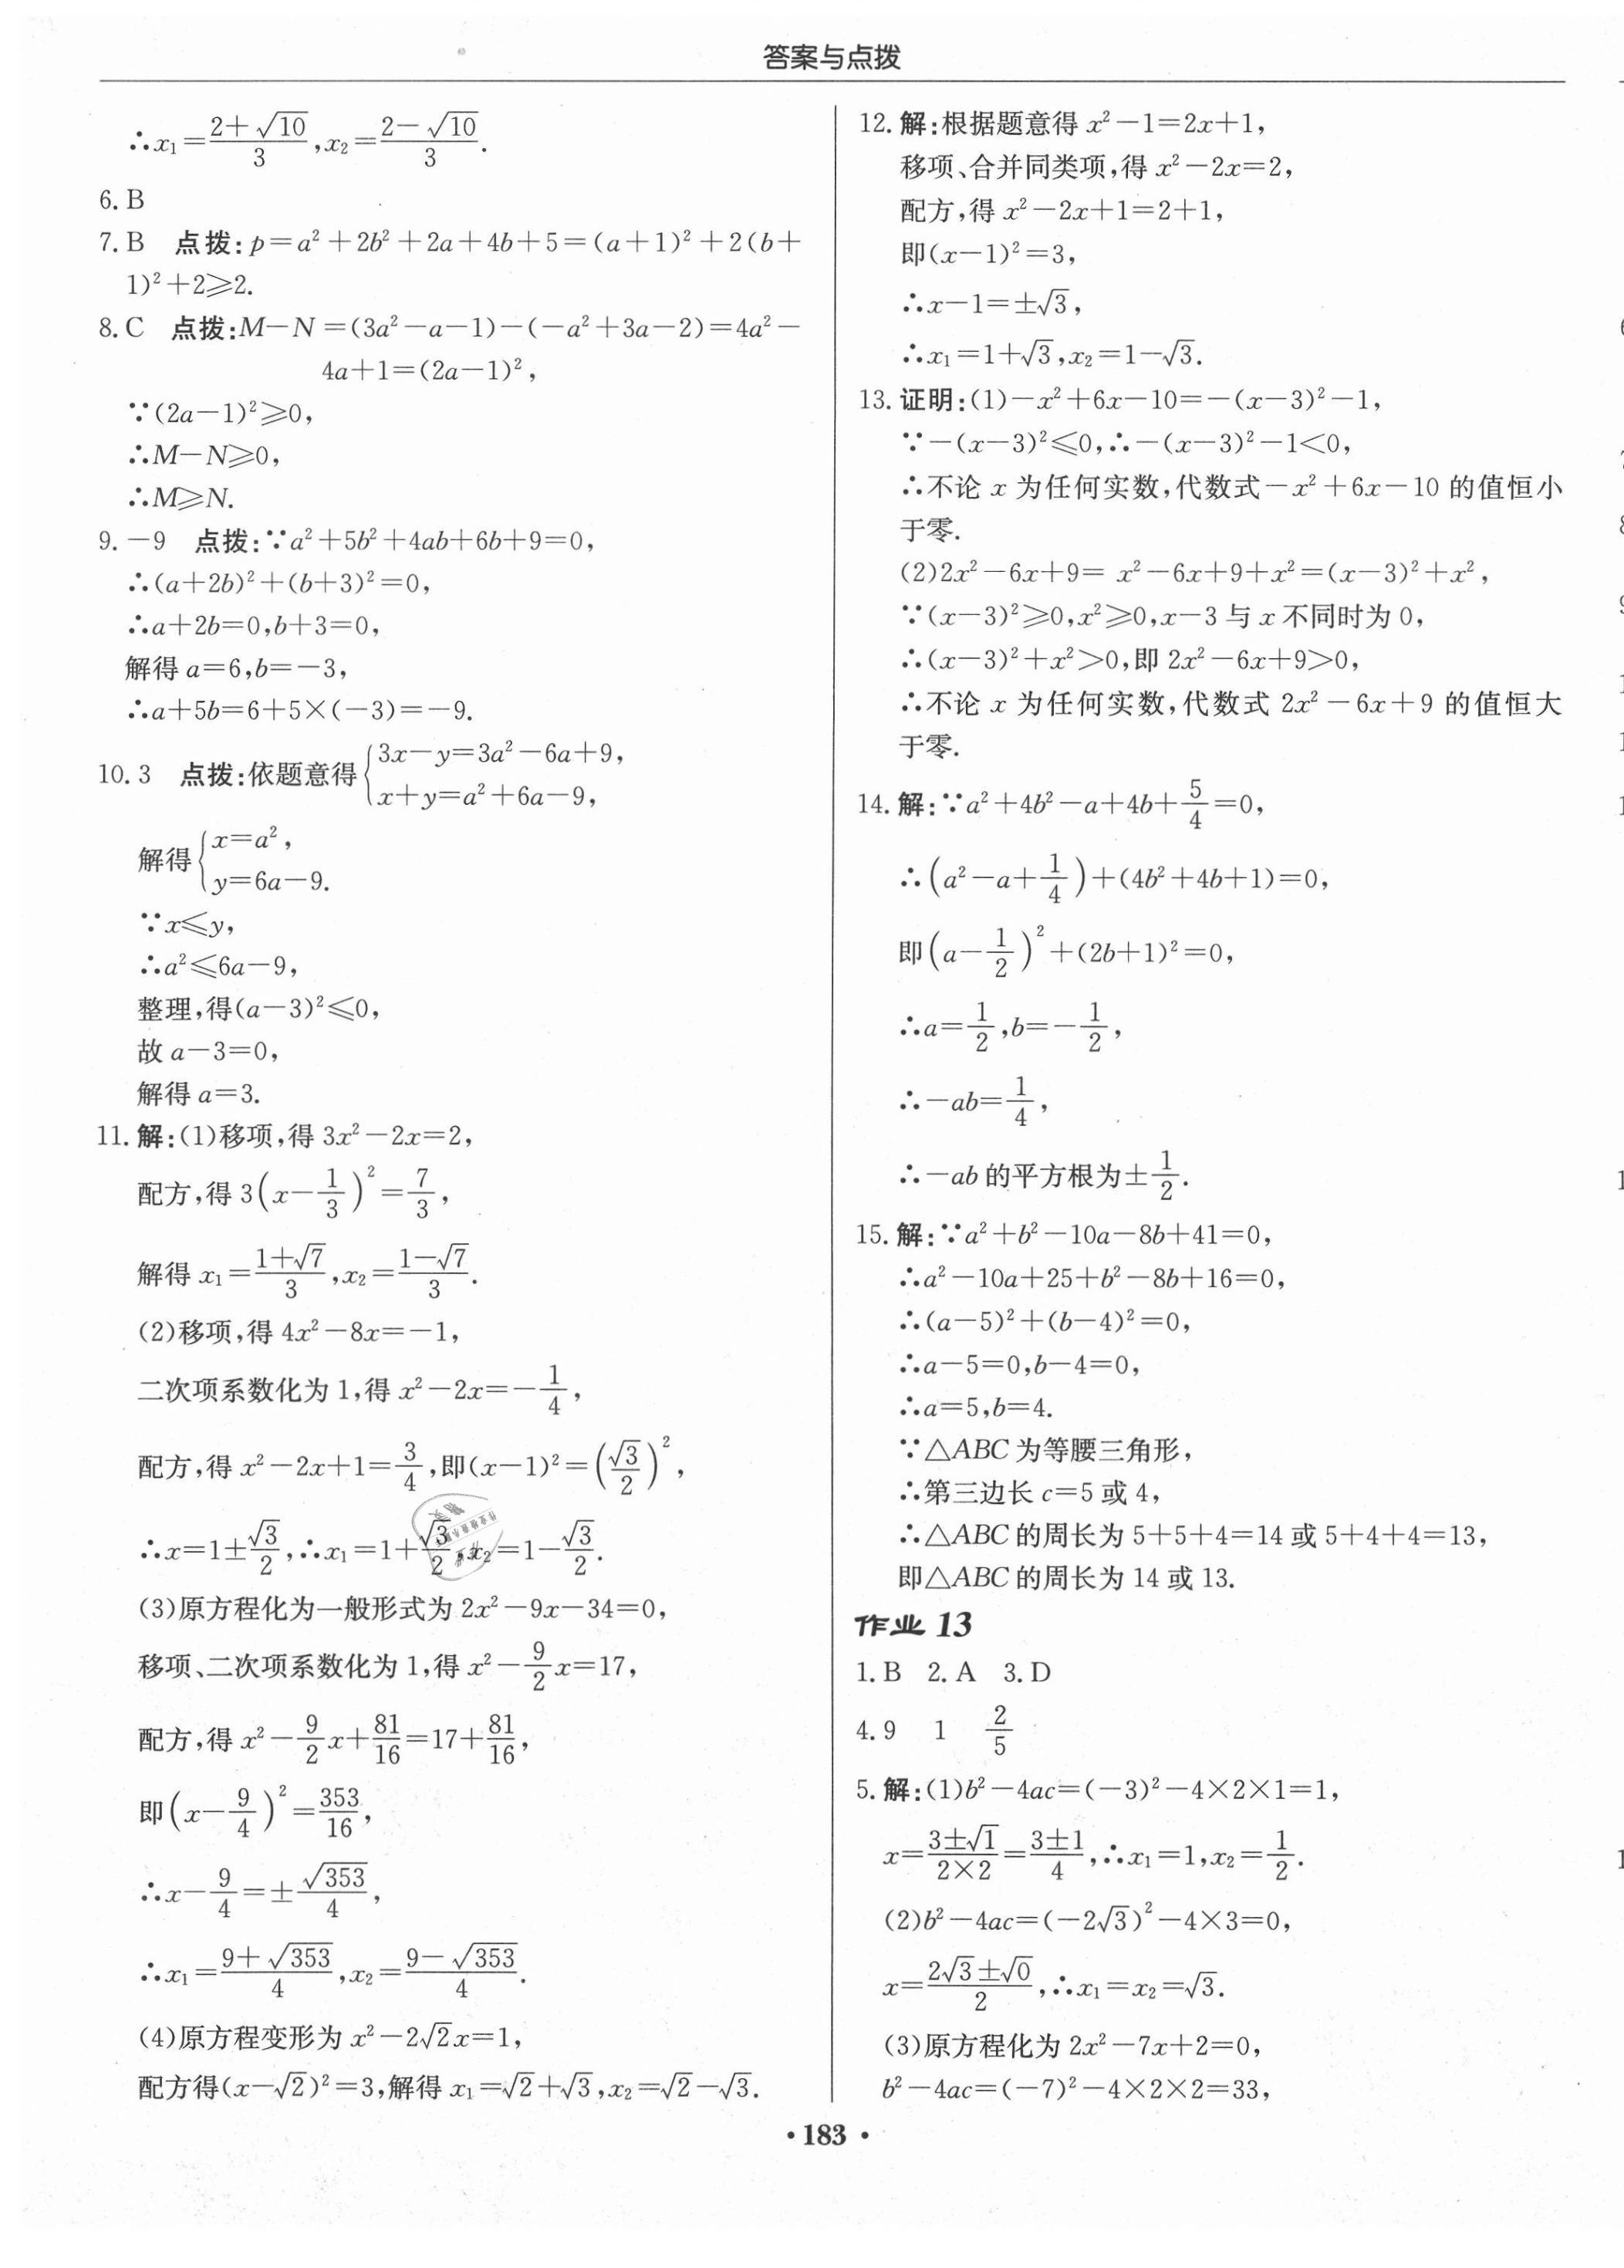 答案与点拨
∴x₁=(2+√10)/3,x₂=(2-√10)/3.
6. B
7. B 点拨:p=a²+2b²+2a+4b+5=(a+1)²+2(b+
1)²+2≥2.
8. C 点拨:M-N=(3a²-a-1)-(-a²+3a-2)=4a²-
4a+1=(2a-1)²,
∵(2a-1)²≥0,
∴M-N≥0,
∴M≥N.
9. -9 点拨:∵a²+5b²+4ab+6b+9=0,
∴(a+2b)²+(b+3)²=0,
∴a+2b=0,b+3=0,
解得a=6,b=-3,
∴a+5b=6+5×(-3)=-9.
10. 3 点拨:依题意得{3x-y=3a²-6a+9,
x+y=a²+6a-9,
解得{x=a²,
y=6a-9.
∵x≤y,
∴a²≤6a-9,
整理,得(a-3)²≤0,
故a-3=0,
解得a=3.
11. 解:(1)移项,得3x²-2x=2,
配方,得3(x-1/3)²=7/3,
解得x₁=(1+√7)/3,x₂=(1-√7)/3.
(2)移项,得4x²-8x=-1,
二次项系数化为1,得x²-2x=-1/4,
配方,得x²-2x+1=3/4,即(x-1)²=(√3/2)²,
∴x=1±√3/2,∴x₁=1+√3/2,x₂=1-√3/2.
(3)原方程化为一般形式为2x²-9x-34=0,
移项、二次项系数化为1,得x²-9/2x=17,
配方,得x²-9/2x+81/16=17+81/16,
即(x-9/4)²=353/16,
∴x-9/4=±√353/4,
∴x₁=(9+√353)/4,x₂=(9-√353)/4.
(4)原方程变形为x²-2√2x=1,
配方得(x-√2)²=3,解得x₁=√2+√3,x₂=√2-√3.
12. 解:根据题意得x²-1=2x+1,
移项、合并同类项,得x²-2x=2,
配方,得x²-2x+1=2+1,
即(x-1)²=3,
∴x-1=±√3,
∴x₁=1+√3,x₂=1-√3.
13. 证明:(1)-x²+6x-10=-(x-3)²-1,
∵-(x-3)²≤0,∴-(x-3)²-1<0,
∴不论x为任何实数,代数式-x²+6x-10的值恒小
于零.
(2)2x²-6x+9= x²-6x+9+x²=(x-3)²+x²,
∵(x-3)²≥0,x²≥0,x-3与x不同时为0,
∴(x-3)²+x²>0,即2x²-6x+9>0,
∴不论x为任何实数,代数式2x²-6x+9的值恒大
于零.
14. 解:∵a²+4b²-a+4b+5/4=0,
∴(a²-a+1/4)+(4b²+4b+1)=0,
即(a-1/2)²+(2b+1)²=0,
∴a=1/2,b=-1/2,
∴-ab=1/4,
∴-ab的平方根为±1/2.
15. 解:∵a²+b²-10a-8b+41=0,
∴a²-10a+25+b²-8b+16=0,
∴(a-5)²+(b-4)²=0,
∴a-5=0,b-4=0,
∴a=5,b=4.
∵△ABC为等腰三角形,
∴第三边长c=5或4,
∴△ABC的周长为5+5+4=14或5+4+4=13,
即△ABC的周长为14或13.
作业13
1. B 2. A 3. D
4. 9 1 2/5
5. 解:(1)b²-4ac=(-3)²-4×2×1=1,
x=(3±√1)/(2×2)=(3±1)/4,∴x₁=1,x₂=1/2.
(2)b²-4ac=(-2√3)²-4×3=0,
x=(2√3±√0)/2,∴x₁=x₂=√3.
(3)原方程化为2x²-7x+2=0,
b²-4ac=(-7)²-4×2×2=33,
• 183 •